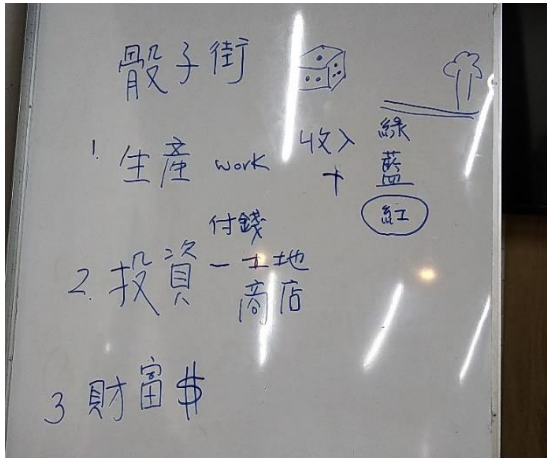 骰子街
1. 生產 work 收入 +
綠
藍
紅
付錢
2. 投資 - 土地
商店
3 財富 $